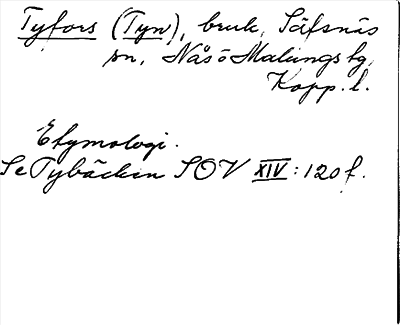 Tyfors (Tyn), bruk, Säfsnäs
sn, Nås o Malungs tg,
Kopp. l.
Etymologi.
Se Tybäcken SOV XIV: 120 f.